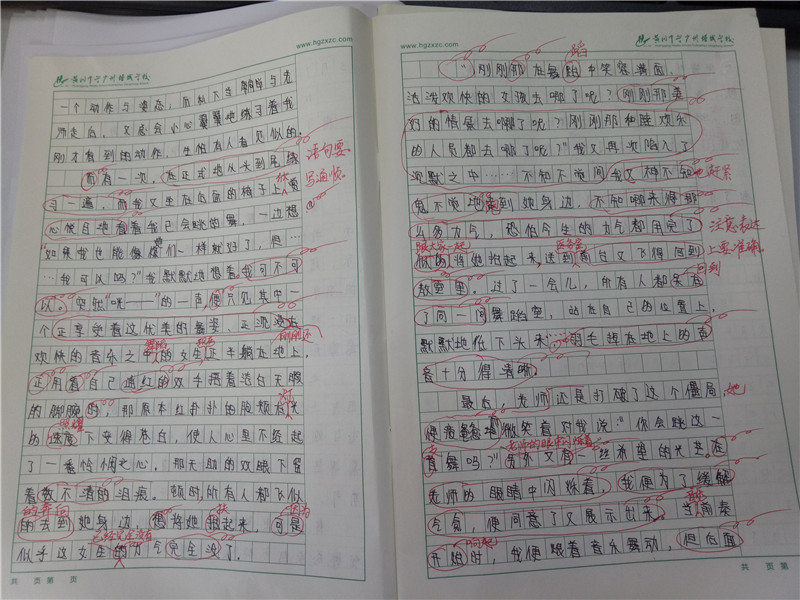 www.hgzxzc.com
一个动作与姿态，而私下在舞蹈与老
师走后，又总会小心翼翼地练习着我
刚才看到的动作，生怕有人看见似的。
而有一次，在正式地从头到尾练
习一遍，而我又坐在后面的椅子上，贯
心使目地看着我已会跳的舞，一边想
“如果我也能像她们一样就好了，但…
…我可以吗？”我默默地想着我可不可
以。突然“咣——”的一声，便只见其中一
个正享受着这优美的舞姿、正沉浸在
欢快的音乐之中的女生正手躺在地上，
正用着自己通红的双手捂着洁白无瑕
的脚腕时，那原本红扑扑的脸颊在
的速度下变得苍白，使人心里不经起
了一番怜悯之心，那无助的双眼下留
着数不清的泪痕。顿时所有人都飞似
的去到她身边，想将她抱起来，可是
似乎这女生的力气完全没了。
语句要
写通顺
的奔向
快
因为
已经完全没有
共 页 第 页
www.hgzxzc.com
“刚刚那在舞蹈中笑容满面，
活泼欢快的女孩去哪了呢？刚刚那美
好的情景去哪了呢？刚刚那和睦欢乐
的人员都去哪了呢？”我又再次陷入了
沉默之中……不知不觉间我又神不知
鬼不觉地溜到她身边，不知哪来得那
么多力气，恐怕今生的力气都用完了
似的将她抱起来，送到前台又飞得回到
教室里。过了一会儿，所有人都来有
了同一间舞蹈室，站在自己的位置上，
默默地低下头来……羽毛掉在地上的声
音十分得清晰。
最后，老师还是打破了这个僵局，
便微笑着对我说：“你会跳这一
首舞吗？”另外又有一丝希望的光芒在
老师的眼睛中闪烁着，我便为了缓解
气氛，便同意了又展示出来。当前奏
开始时，我便跟着音乐舞动，但后面
蹈
赶紧
注意表达
上要准确
跟大家一起
医务室
回到
她
老师的眼中闪烁着
响起
共 页 第